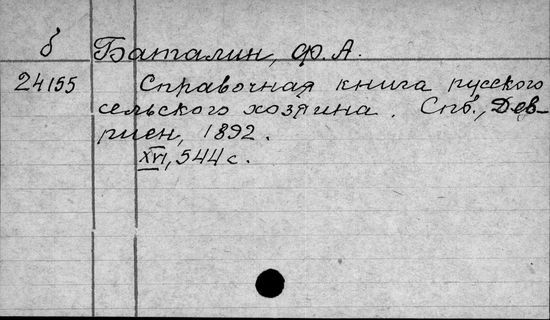 б Баталин, Ф. А.
24155 Справочная книга русского
сельского хозяина. Спб., Дев-
риен, 1892.
XVI, 544 с.